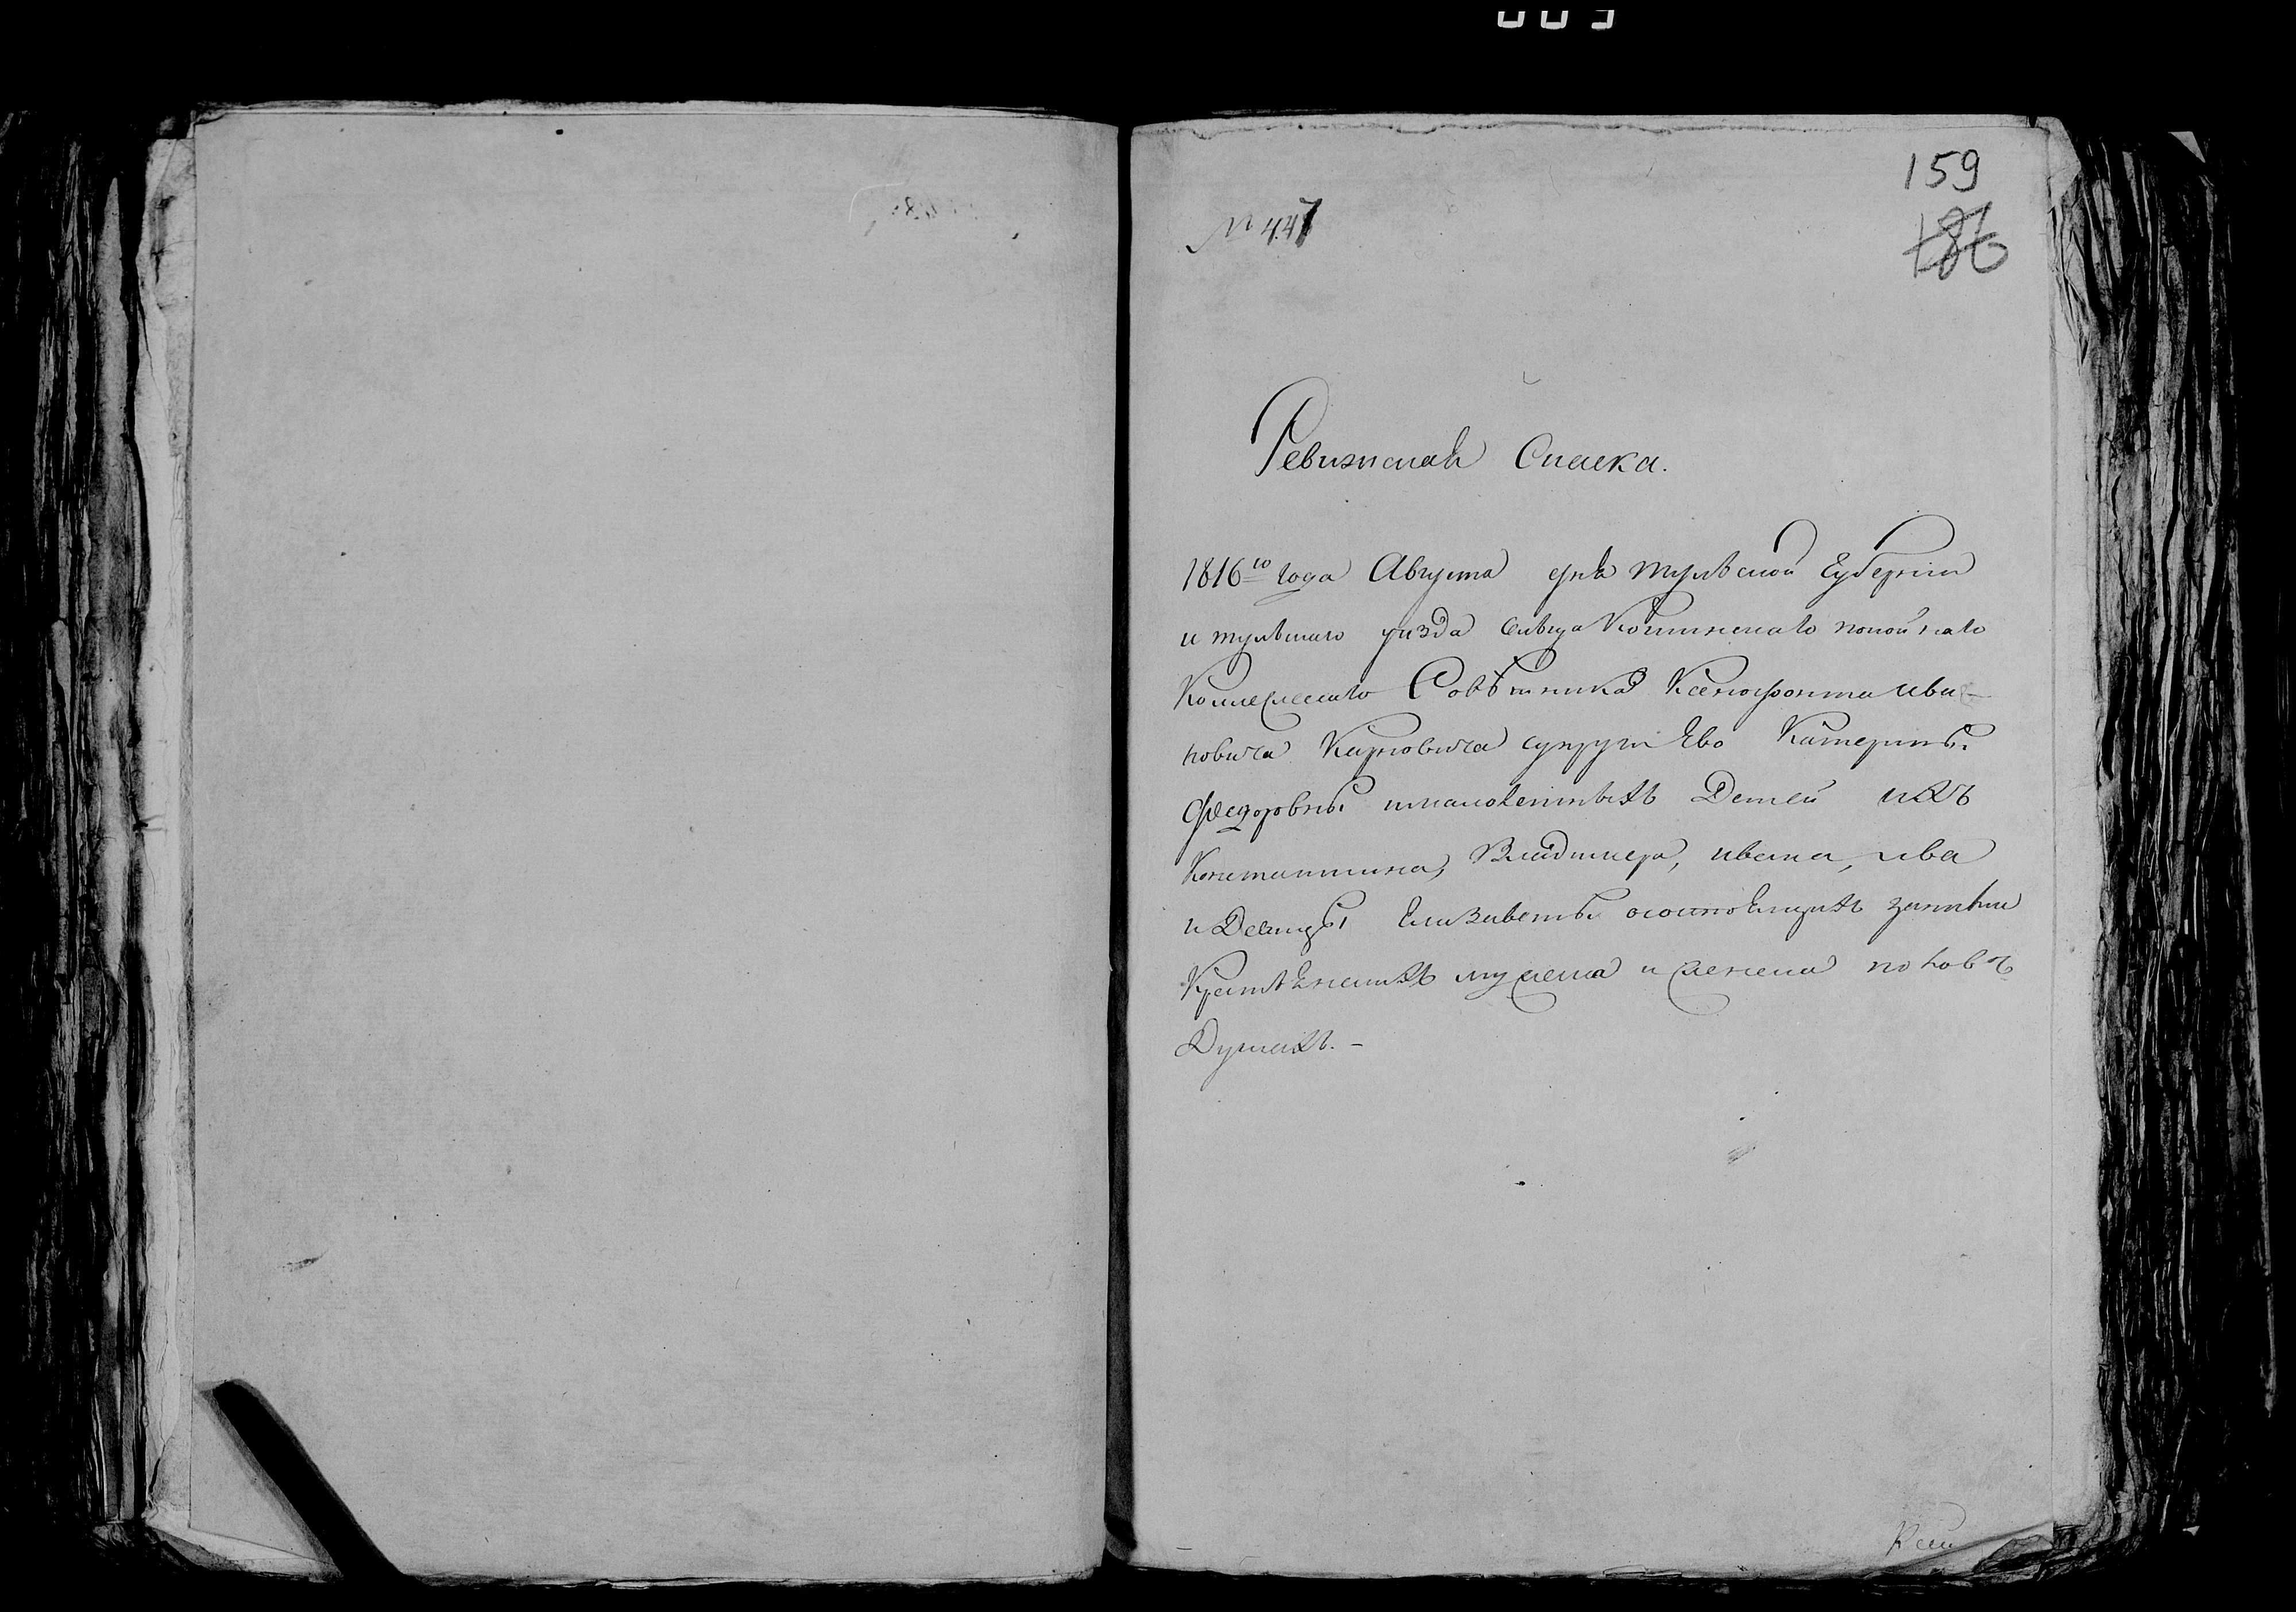 159
№ 447
186
Ревизская Сказка.
1816го года Августа дня тульской Губернии
и тульскаго уизда сельца покойнаго
Коллежскаго Советника Ксенофонта ива-
новича Карновича супруги Ево Катерины
Федоровны ималолетныхъ Детей ихъ
Константина, Владимера, ивана, льва
и Девицы Елизаветы осостоящихъ заними
Крестьянехъ мужеска и женска полов
Душахъ.-